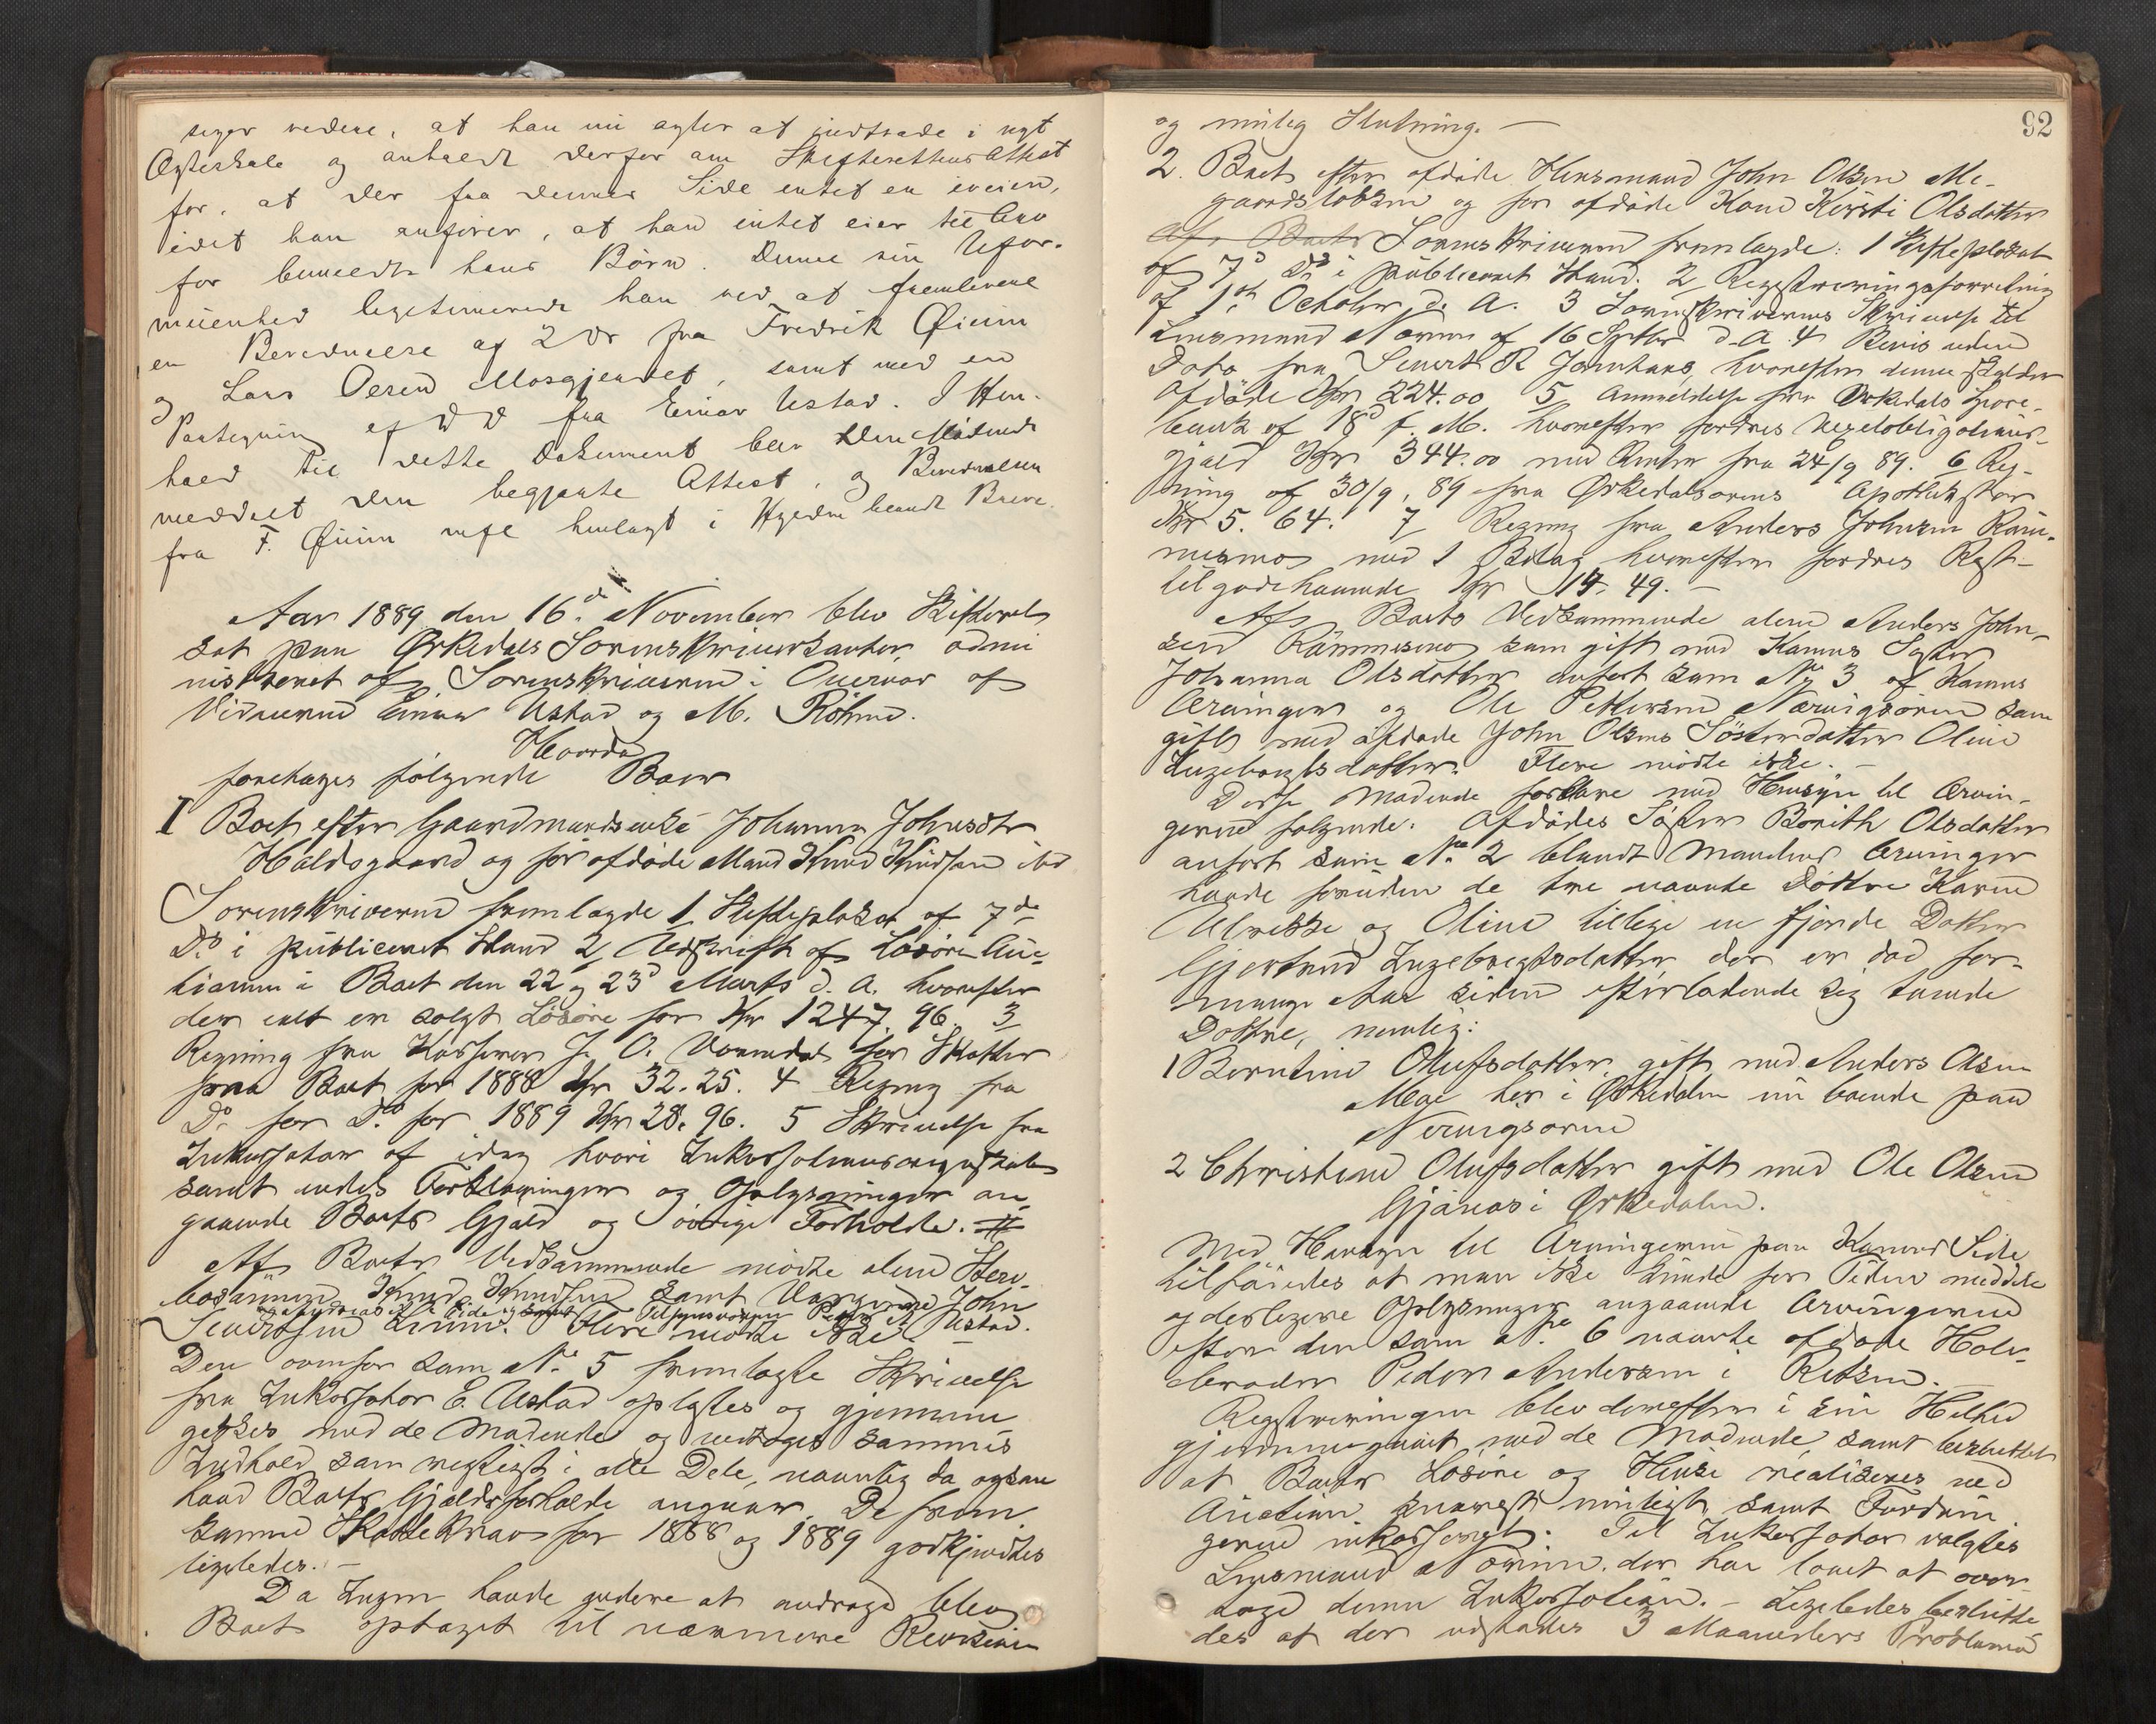 siger videre, at han nu agter at indtræde i nyt
Ægteskab og anholdt derfor om Skifterettens Attest
for, at der fra dennes Side intet er iveien,
idet han anfører, at han intet eier til Arv
for bemeldte hans Børn. Denne sin Ufor-
muenhed legitimerede han ved at fremlevere
en Bevidnelse af 2 ds fra Fredrik Øium
og Lars Olsen Mosgjerdet, samt med en
Paategning af D D fra Einar Ustad. I Hen-
hold til dette Dokument blev den Mødende
meddelt den begjærte Attest, og Bevidnelsen
fra F. Øium mfl henlagt i Hylden blandt Breve.
Aar 1889 den 16de November blev Skifteret
sat paa Ørkedals Sorenskriverkontor admi
nistreret af Sorenskriveren i Overvær af
Vidnerne Einar Ustad og M. Röhme.
Hvorda
foretages følgende Boer
I Boet efter Gaardmandsenke Johanna Johnsdtr
Holdsgaard og før afdøde Mand Knud Knudsen ibd
Sorenskriveren fremlagde 1 Skifteplakat af 7de
Ds i publiceret Stand 2 Udskrift af Løsøre Auc-
tionen i Boet den 22 og 23d Marts d. A. hvorefter
der ialt er solgt Løsøre for Kr 1247. 96. 3
Regning fra Kasserer J. O. for Skatter
fra Boet for 1888 Kr 32.25. 4 Regning fra
Do for Do for 1889 Kr 28.96. 5 Skrivelse fra
Inkassator af idag hvori Inkassationsregnskab
samt endel Forklaringer og Oplysninger an-
gaaende Boets Gjæld og øvrige Forholde.
Af Boets Vedkommende mødte alene Sterv-
bosønnen Knud Knudsen samt Værgerne John
Tilsynsværgen Peder A Ustad.
Sivertsen Flere mødte ikke.
Den ovenfor som No 5 fremlagte Skrivelse
fra Inkassator E. Ustad oplæstes og gjennem
gikkes med de Mødende og vedtoges sammes
Indhold som rigtigt i alle Dele, navnlig da ogsaa
hvad Boets Gjældsforholde angaar. De frem
komne Skattekrav for 1888 og 1889 godkjendtes
ligeledes. -
Da Ingen havde videre at andrage blev
Boet optaget til nærmere Revision
92
og mulig Slutning. -
2. Boet efter afdøde Husmand John Olsen Me-
gaardsløkken og før afdøde Kone Kirsti Olsdatter
Af Boets Sorenskriveren fremlagde: 1 Skifteplakat
af 7d Ds i publiceret Stand. 2 Registreringsforretning
af 1ste Octobr d. A. 3 Sorenskriverens Skrivelse til
Lensmand Nærum af 16 Septbr d. A. 4 Bevis uden
Dato fra Sivert R hvorefter denne skylder
Afdøde Kr 224.00 5 Anmeldelse fra Ørkedals Spare-
bank af 18d f. M. hvorefter fordres Vexelobligations-
gjæld Kr 344.00 med Renter fra 24/9 89. 6 Reg-
ning af 30/9. 89 fra Ørkedalsørens Apothek stor
Kr 5. 64. 7 Regning fra Anders Johnsen Röm-
mesmo med 1 Bilag hvorefter fordres Rest-
tilgodehavende Kr 14. 49. -
Af Boets Vedkommende alene Anders John-
sen Römmesmo som gift med Konens Søster
Johanna Olsdatter anført som No 3 af Konens
Arvinger og Ole Pettersen Nervigsøren som
gift med afdøde John Olsens Søsterdatter Oline
Ingebregtsdatter. Flere mødte ikke. -
Disse Mødende forklare med Hensyn til Arvin-
gerne følgende. Afdødes Søster Borith Olsdatter
anført som No 2 blandt Mandens Arvinger
havde foruden de tvende nævnte Døttre Karen
Ulrikke og Oline tillige en fjerde Datter
Gjertrud Ingebregtsdatter der er død for
mange Aar siden efterladende sig tvende
Døttre, nemlig:
1 Berntine Olufsdatter gift med Anders Olsen
Moe her i Ørkedalen nu boende paa
Nervigsøren
2 Christine Olufsdatter gift med Ole Olsen
Gjønnes i Ørkedalen.
Med Hensyn til Arvingerne paa Konens Side
tilføiedes at man ikke kunde for Tiden meddele
yderligere Oplysninger angaaende Arvingerne
efter den som No 6 nævnte afdøde Halv-
broder Peder Andersen i Rissen. -
Registreringen blev derefter i sin Helhed
gjennemgaaet med de Mødende, samt besluttet
at Boets Løsøre og Huse realiseres ved
Auction snarest muligt samt Fordrin-
gerne inkasseret. Til Inkassator valgtes
Lensmand Nærum, der har lovet at over-
tage denne Inkassation. - Ligeledes beslutte
des at der udstædes 3 Maaneders Proklama